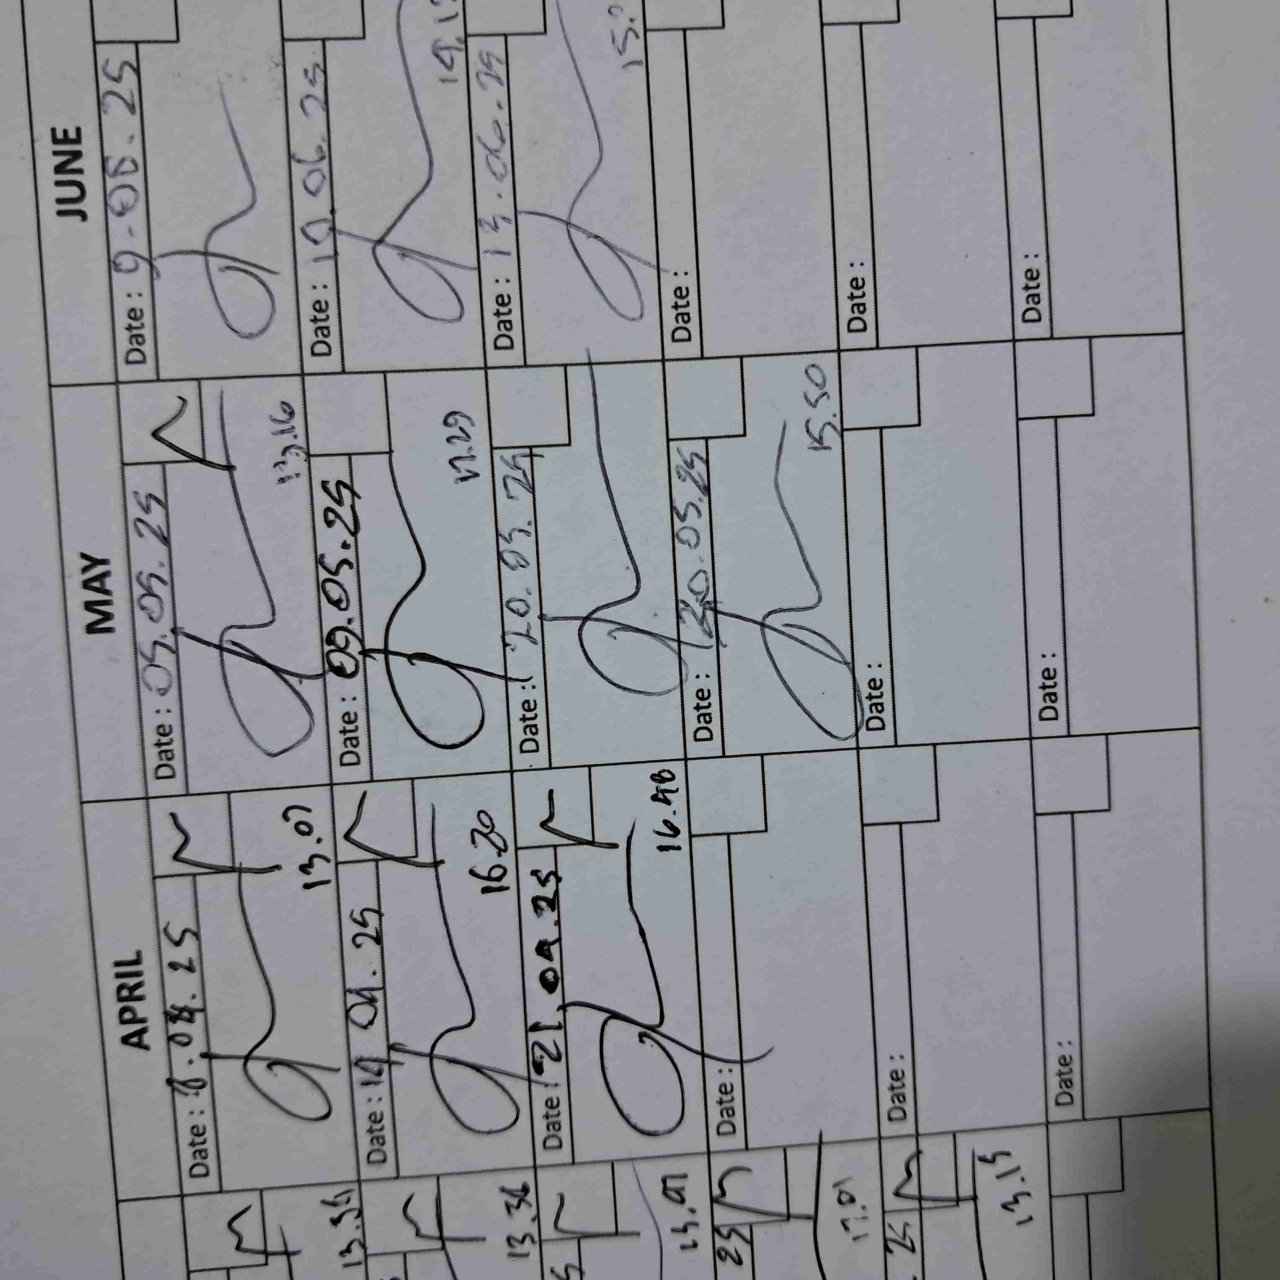 APRIL
Date : 8.04.25
13.07
Date : 14 04.25
16.20
Date : 21.04.25
16.48
Date :
Date :
Date :
MAY
Date : 05.05.25
13.16
Date : 09.05.25
17.29
Date : 20.05.25
Date : 20.05.25
15.50
Date :
Date :
JUNE
Date : 9.06.25
Date : 10.06.25
Date : 13.06.25
Date :
Date :
Date :
13.36
25
17.01
25
13.15